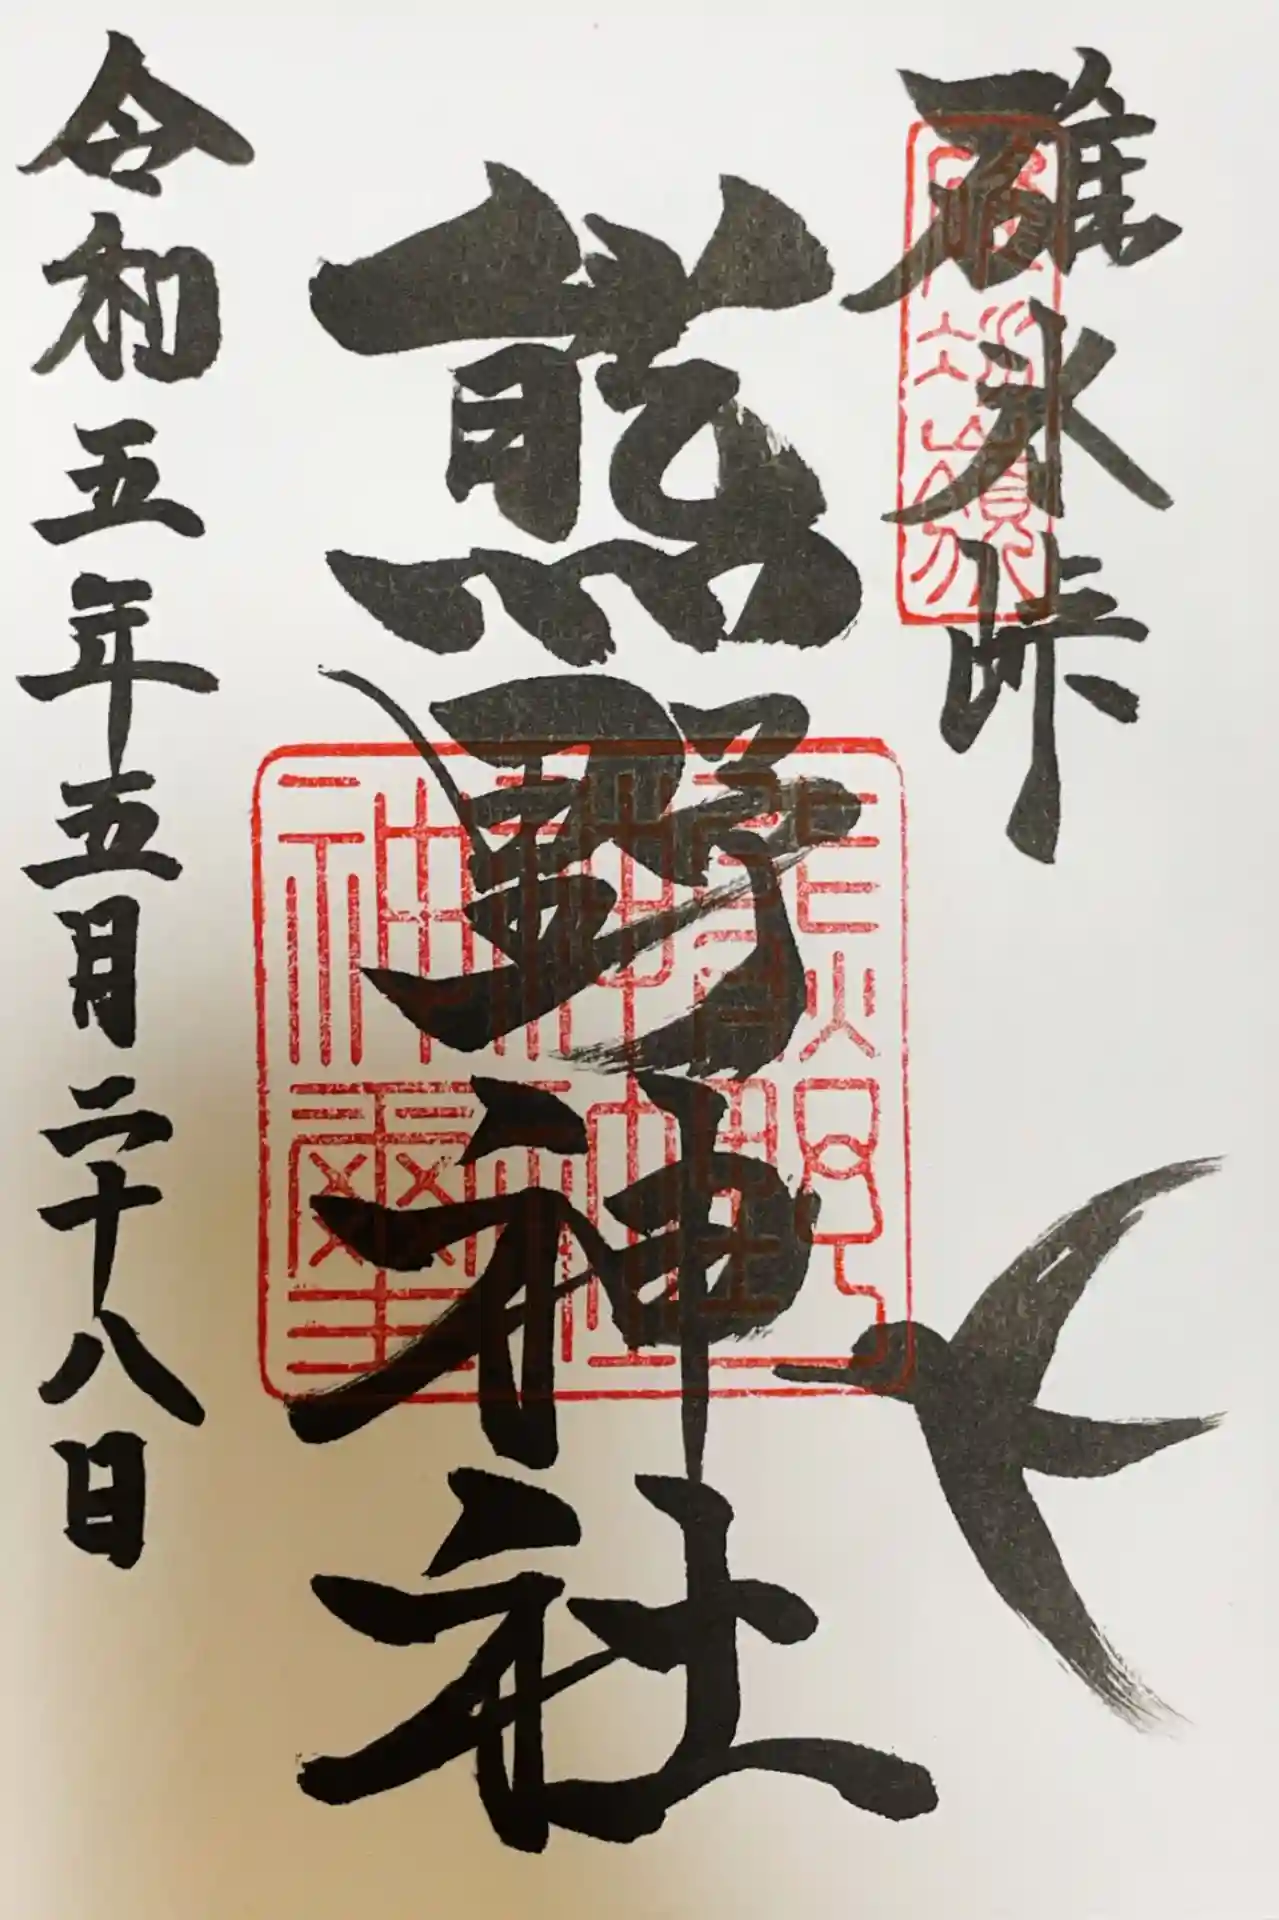 碓氷峠
熊野神社
令和五年五月二十八日
熊野皇
神社
神璽